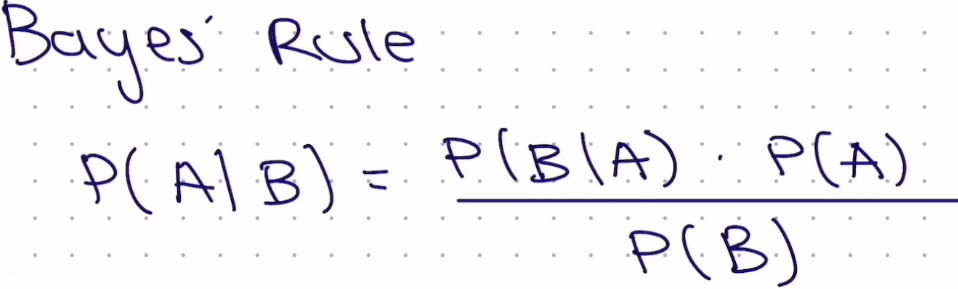 Bayes' Rule
P(A|B) = P(B|A) · P(A)
P(B)